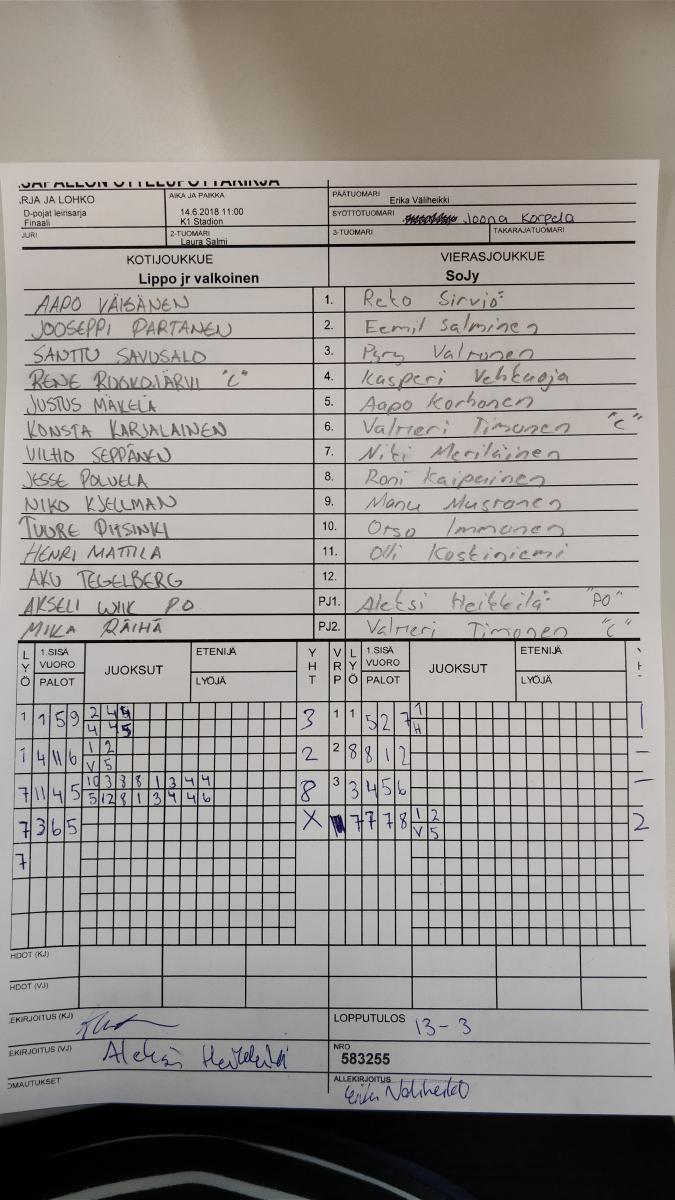 RJA JA LOHKO AIKA JA PAIKKA PÄÄTUOMARI Erika Väliheikki
D-pojat leirisarja 14.6.2018 11:00 SYÖTTÖTUOMARI Joona Korpela
Finaali K1 Stadion
JURI 2-TUOMARI 3-TUOMARI TAKARAJATUOMARI
Laura Salmi
KOTIJOUKKUE VIERASJOUKKUE
Lippo jr valkoinen SoJy
AAPO VÄISÄNEN 1. Reko Sirviö
JOOSEPPI PARTANEN 2. Eemil Salminen
SANTTU SAVUSALO 3. Pyry Valtonen
RENE RUOKOJÄRVI "C" 4. Kasperi Vehkaoja
JUSTUS MÄKELÄ 5. Aapo Korhonen
KONSTA KARJALAINEN 6. Valtteri Timonen "C"
VILHO SEPPÄNEN 7. Niki Meriläinen
JESSE POLVELA 8. Roni Kaipainen
NIKO KJELLMAN 9. Manu Mustonen
TUURE PITSINKI 10. Orso Immonen
HENRI MATTILA 11. Olli Koskiniemi
AKU TEGELBERG 12.
AKSELI WIIK PO PJ1. Aleksi Heikkilä "PO"
MIKA RÄIHÄ PJ2. Valtteri Timonen "C"
LYÖ 1.SISÄ VUORO PALOT JUOKSUT ETENIJÄ LYÖJÄ YHT VRP LYÖ 1.SISÄ VUORO PALOT JUOKSUT ETENIJÄ LYÖJÄ
1 1 5 9 2 4 4 3 1 1 5 2 7 1 1
4 4 5 H
1 4 11 6 1 2 2 2 8 8 1 2 -
V 5
7 11 4 5 10 3 8 8 1 3 4 4 8 3 3 4 5 6 -
5 12 8 1 3 4 4 6
7 3 6 5 X 7 7 7 8 1 2 2
V 5
7
HDOT (KJ)
HDOT (VJ)
EKIRJOITUS (KJ) LOPPUTULOS 13-3
EKIRJOITUS (VJ) Aleksi Heikkilä NRO
583255
OMAUTUKSET ALLEKIRJOITUS